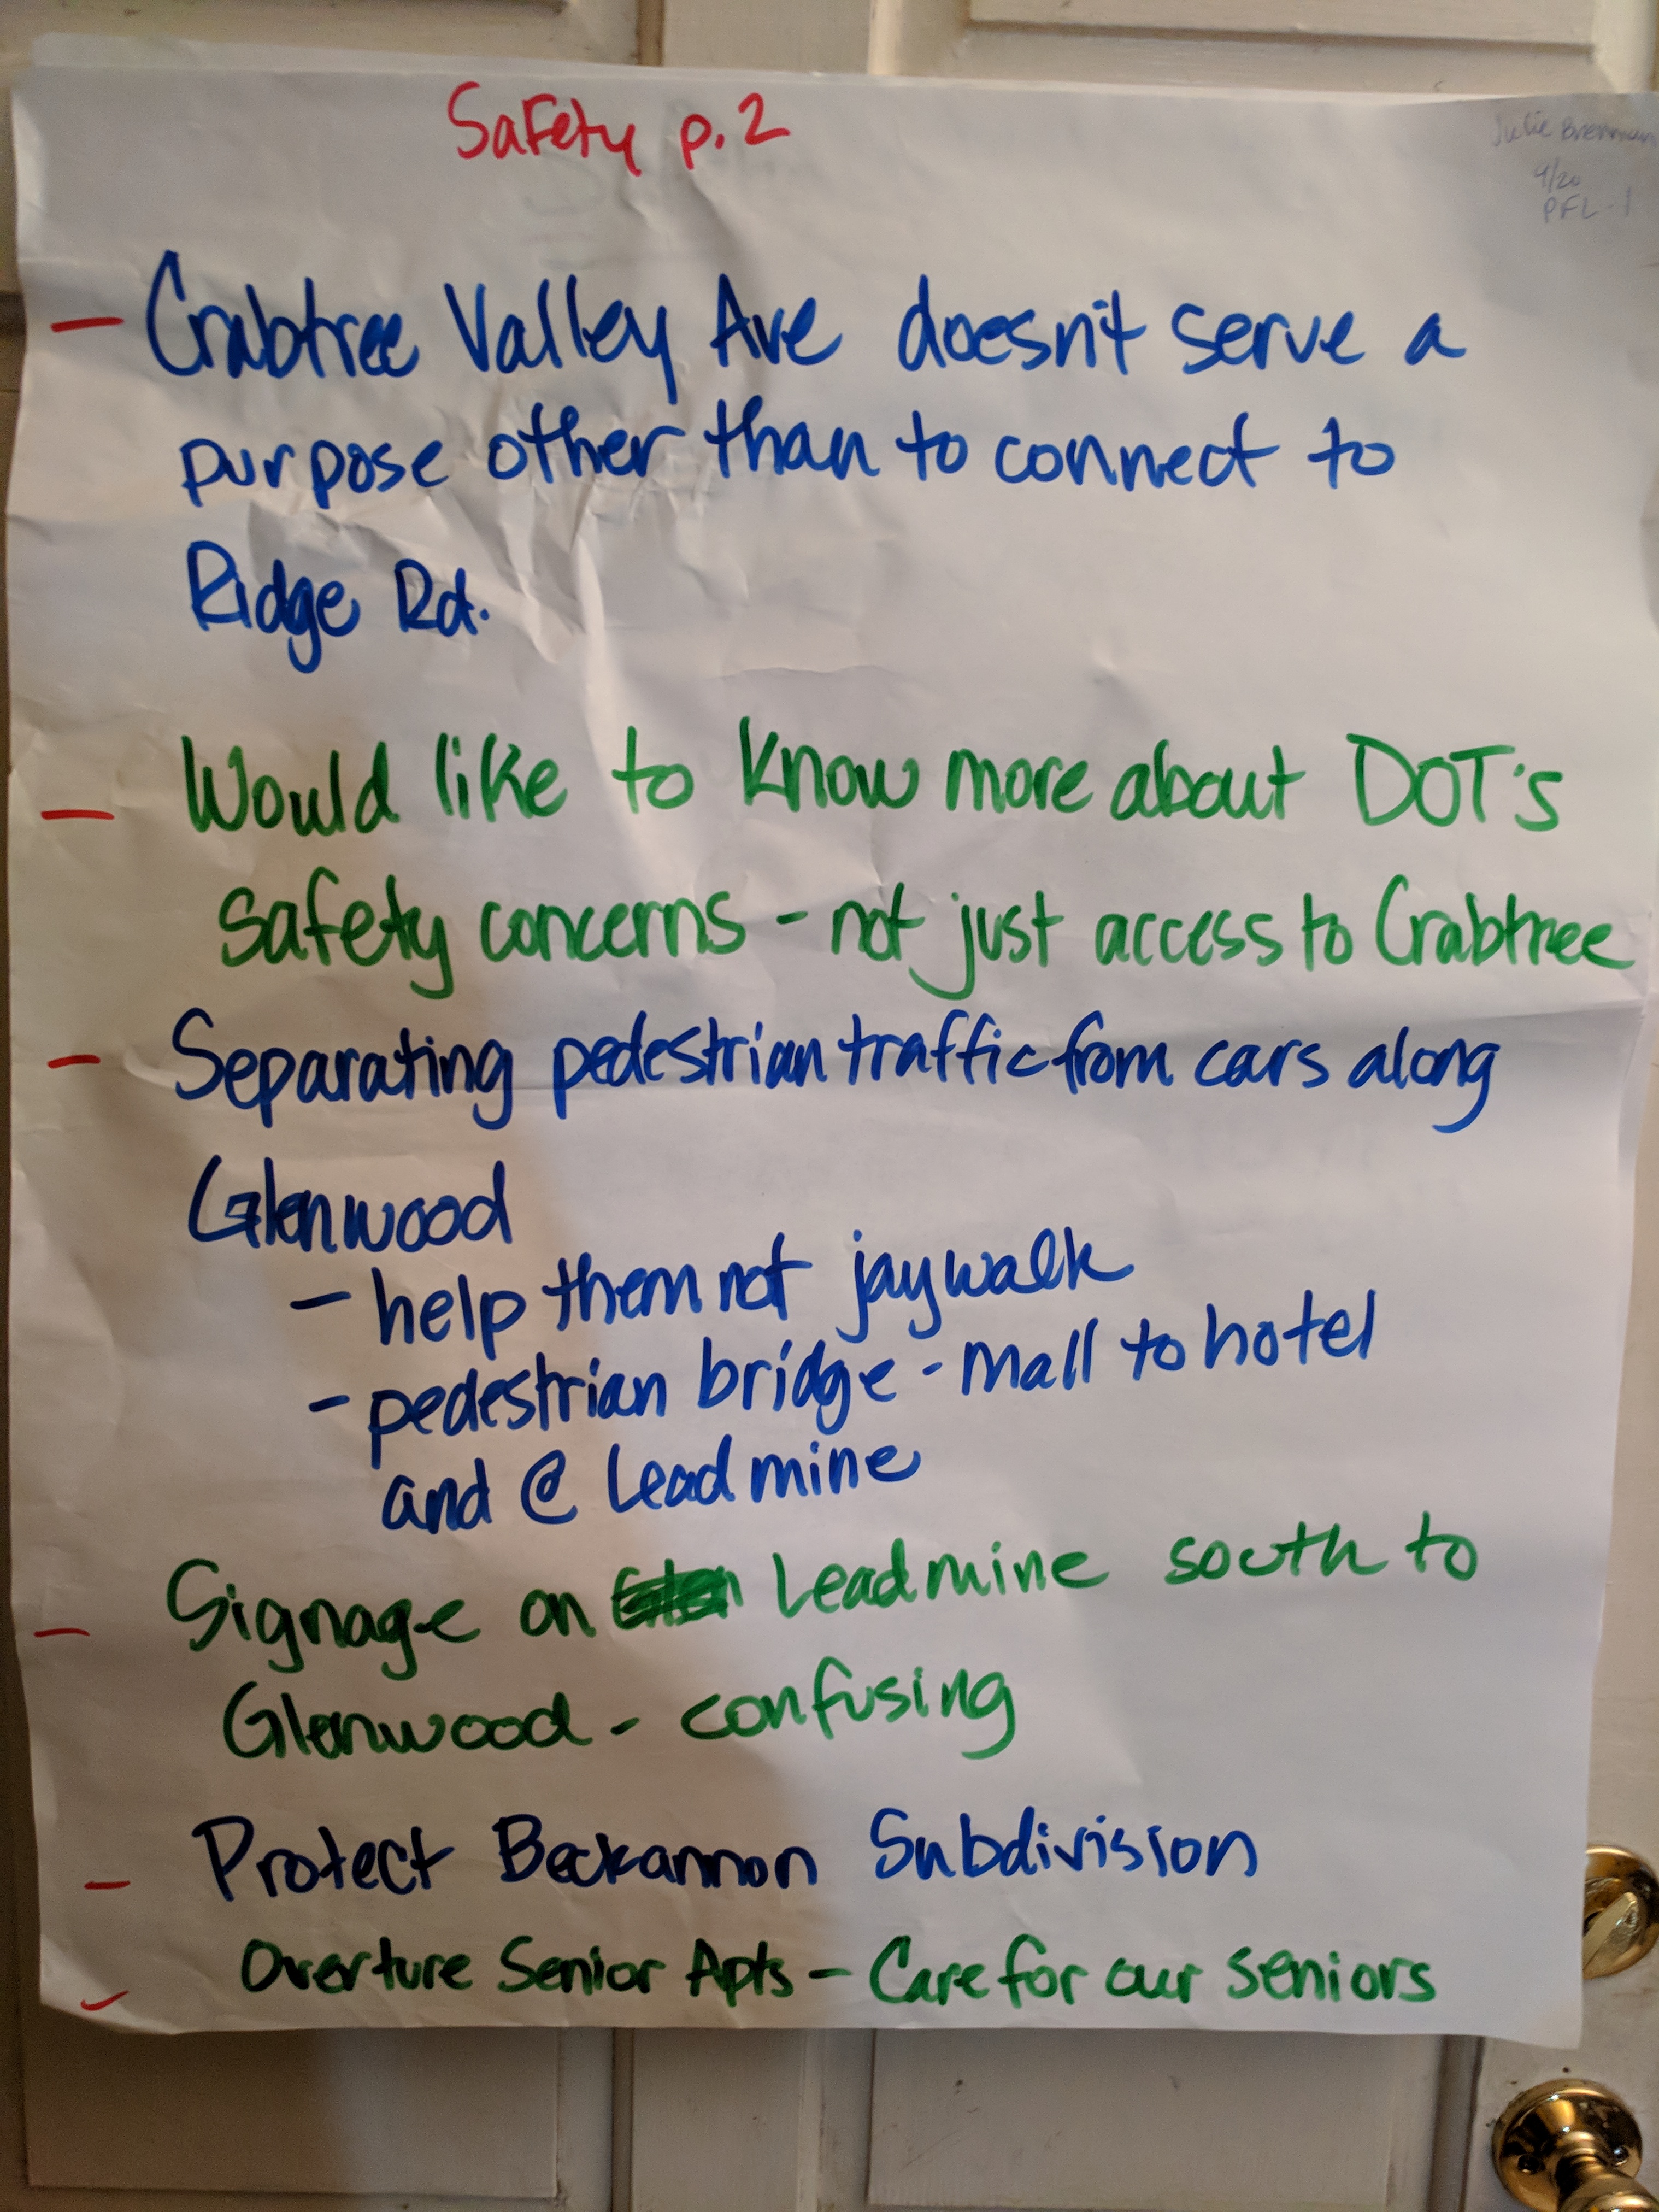 Safety p.2
Julie Brennan
9/20
PFL-1
- Crabtree Valley Ave doesn't serve a
purpose other than to connect to
Ridge Rd.
- Would like to know more about DOT's
safety concerns - not just access to Crabtree
- Separating pedestrian traffic from cars along
Glenwood
- help them not jaywalk
- pedestrian bridge - mall to hotel
and @ Leadmine
- Signage on Leadmine south to
Glenwood - confusing
- Protect Beckannon Subdivision
- Overture Senior Apts - Care for our seniors